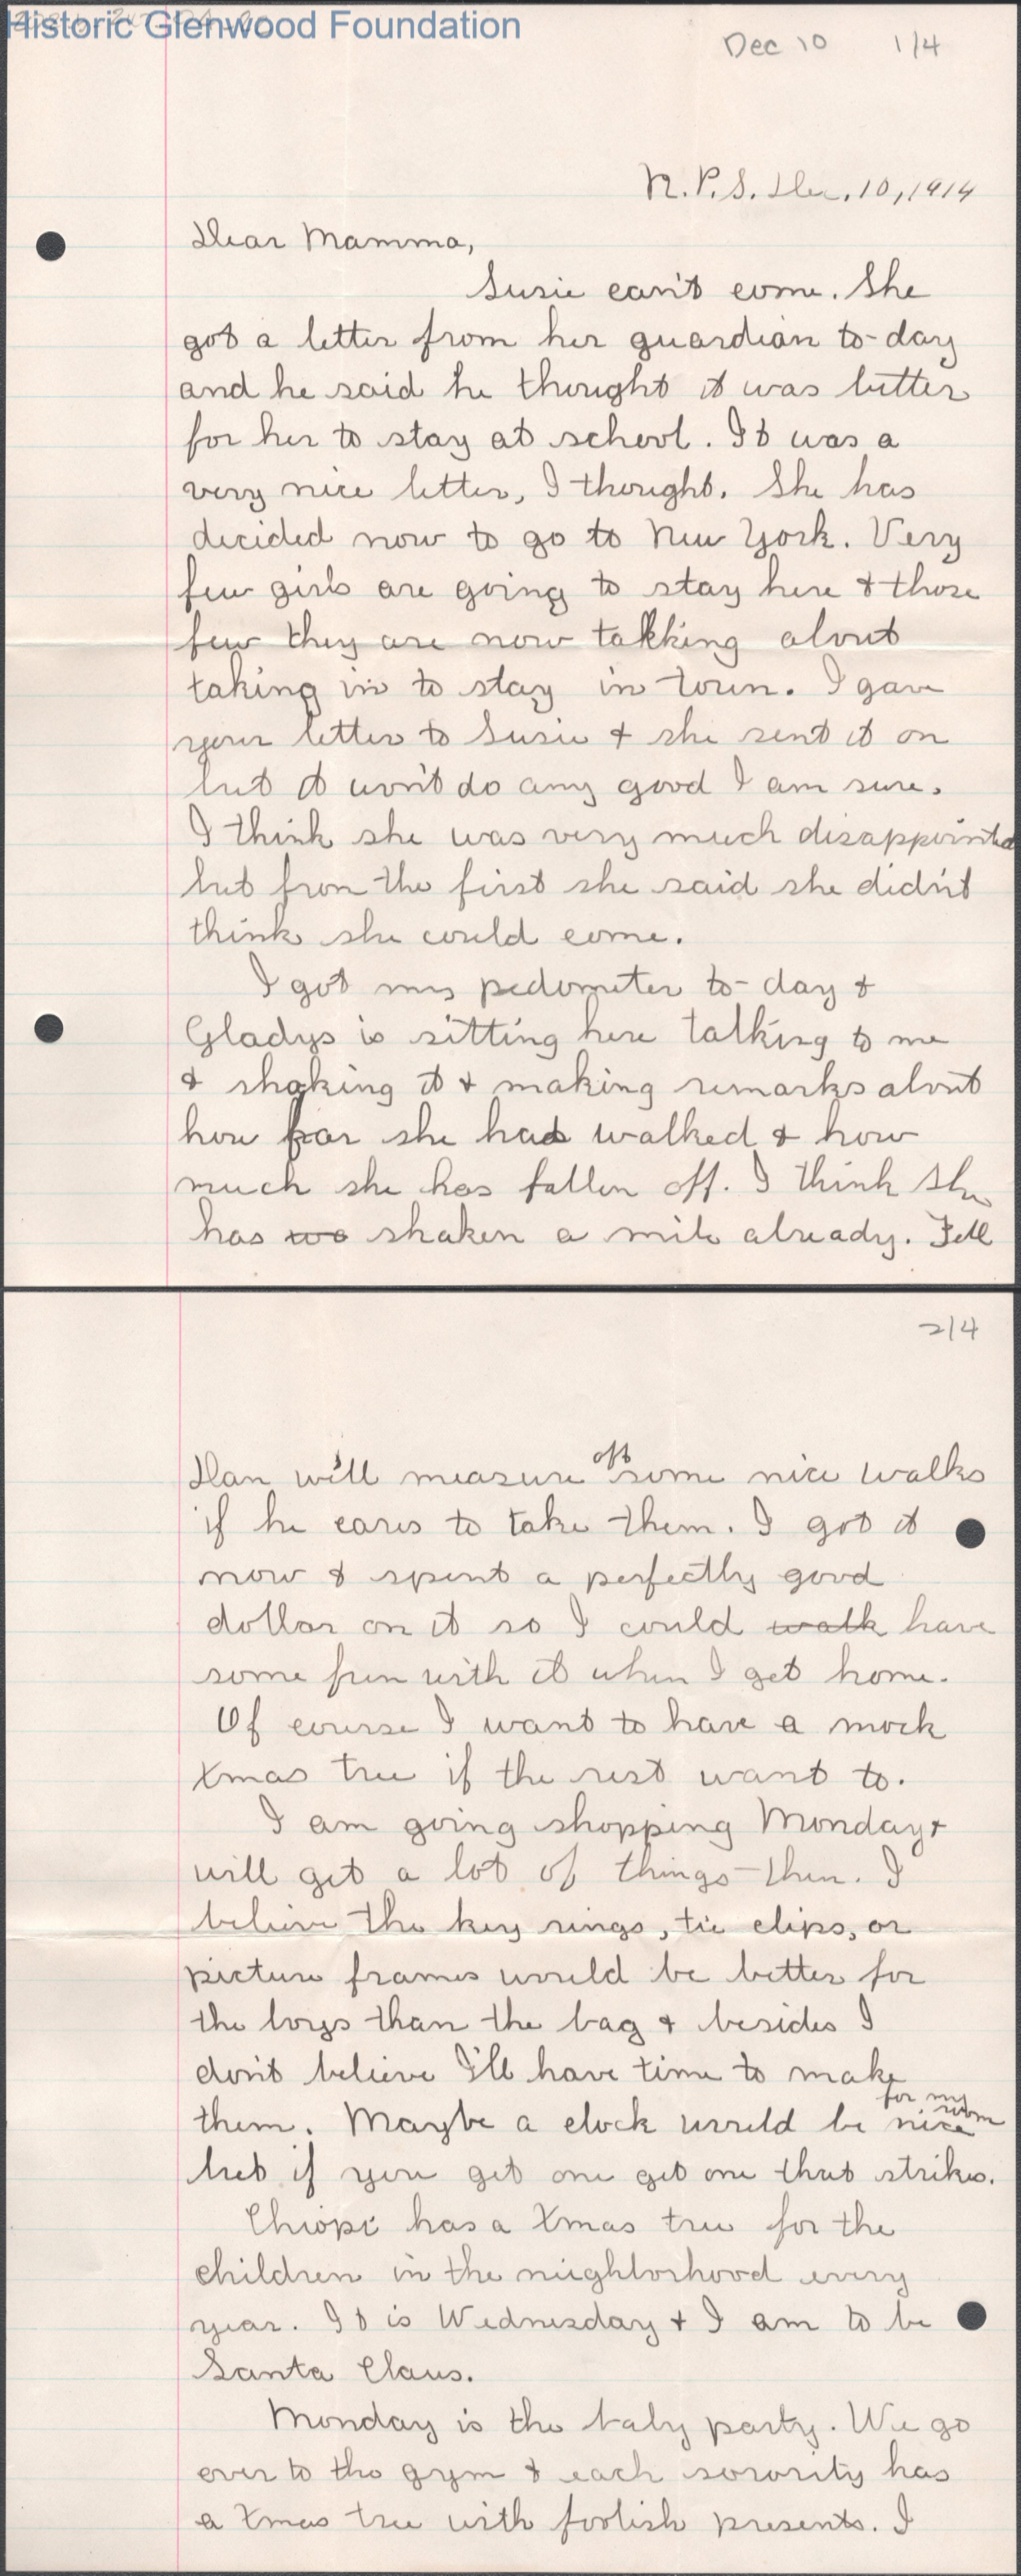 Historic Glenwood Foundation
Dec 10 1/4
N.P.S. Dec. 10, 1914
Dear Mamma,
Susie can't come. She
got a letter from her guardian to-day
and he said he thought it was better
for her to stay at school. It was a
very nice letter, I thought. She has
decided now to go to New York. Very
few girls are going to stay here & those
few they are now talking about
taking in to stay in town. I gave
your letter to Susie & she sent it on
but it won't do any good I am sure.
I think she was very much disappointed
but from the first she said she didn't
think she could come.
I got my pedometer to-day &
Gladys is sitting here talking to me
& shaking it & making remarks about
how far she had walked & how
much she has fallen off. I think she
has shaken a mile already. Tell
2/4
Dan will measure off some nice walks
if he cares to take them. I got it
now & spent a perfectly good
dollar on it so I could walk have
some fun with it when I get home.
Of course I want to have a mock
Xmas tree if the rest want to.
I am going shopping Monday &
will get a lot of things then. I
believe the key rings, tie clips, or
picture frames would be better for
the boys than the bag & besides I
don't believe I'll have time to make
them. Maybe a clock would be nice for my room
but if you get one get one that strikes.
has a Xmas tree for the
children in the neighborhood every
year. It is Wednesday & I am to be
Santa Claus.
Monday is the baby party. We go
over to the gym & each sorority has
a Xmas tree with foolish presents. I